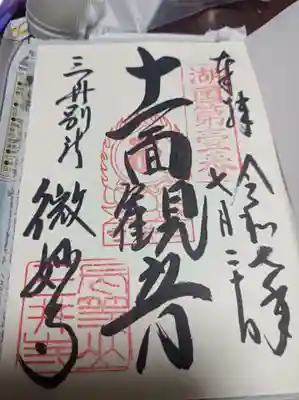 奉拝
令和七年
七月二十日
湖國第壹番
十一面観音
三井別所
微妙寺